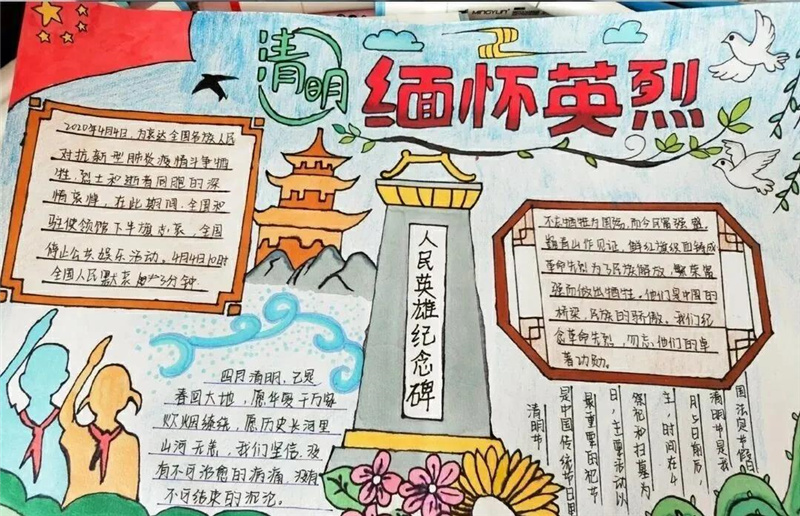 清明
缅怀英烈
2020年4月4日,为表达全国各族人民
对抗新型肺炎疫情斗争牺
牲烈士和逝者同胞的深
情哀悼,在此期间,全国和
驻使领馆下半旗志哀,全国
停止公共娱乐活动。4月4日10时
全国人民默哀3分钟
人民英雄纪念碑
不忘牺牲为国殇,而今民富强盛,
青山作见证,鲜红旗帜血铸成
革命先烈为了民族解放、繁荣富
强而做出牺牲,他们是中国的
桥梁、民族的骄傲,我们纪
念革命先烈,勿忘他们的卓
著功勋。
四月清明,已是
春回大地,愿华夏千万家
炊烟缭绕,愿历史长河里
山河无恙,我们坚信,没
有不可治愈的病痛,没有
不可结束的沉沦。
清明节
是中国传统节日里
最重要的祀节
日,主要活动以
祭祀和扫墓为
主,时间在4
月5日前后,
清明节是我
国法定节假日